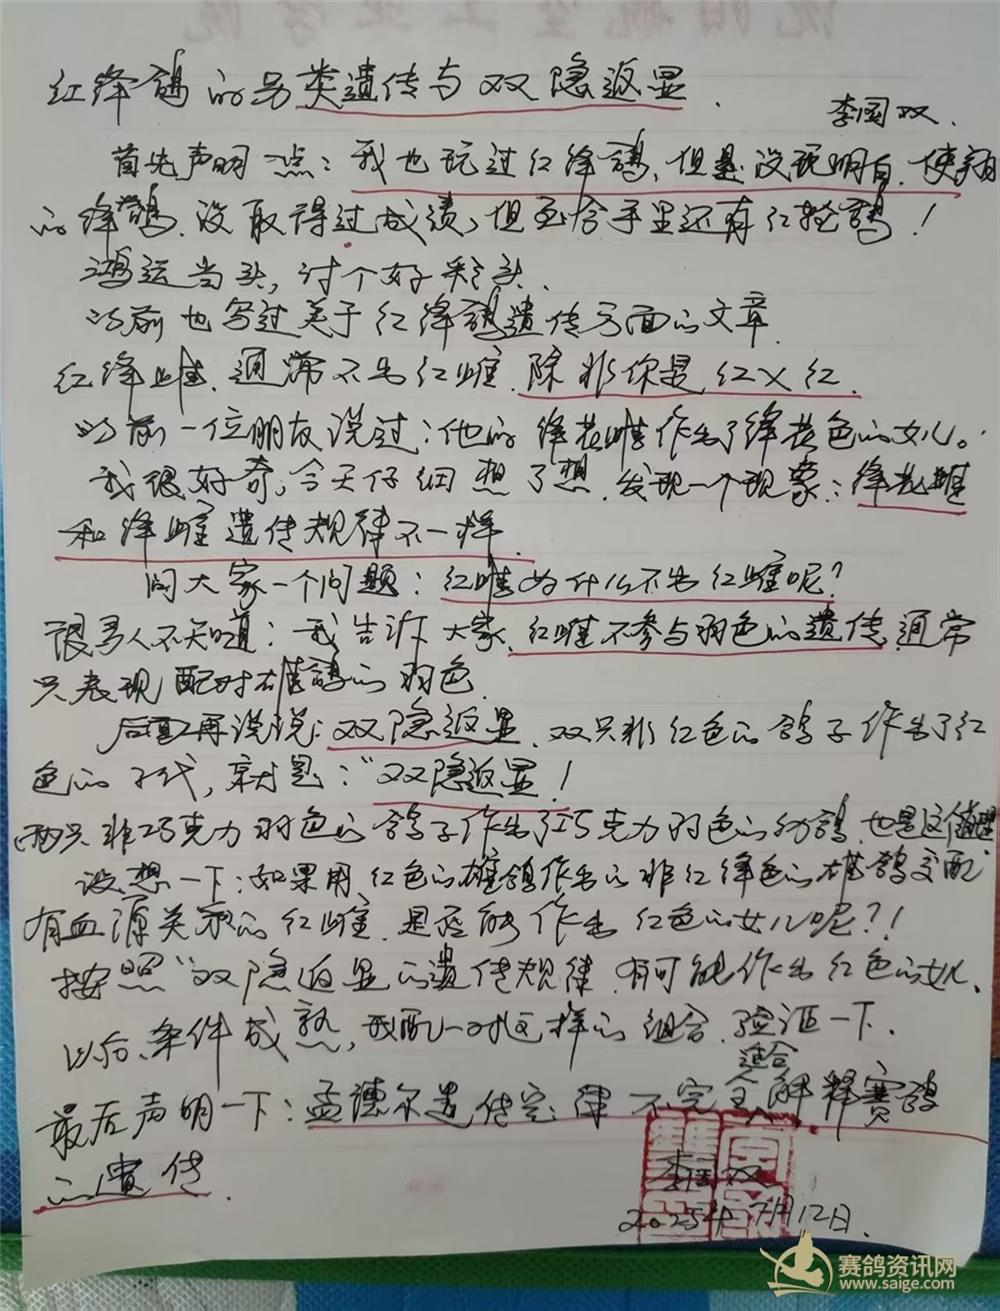 沈阳航空工业学院
红绛鸽的另类遗传与双隐返显.
李国双.
首先声明一点：我也玩过红绛鸽、但是没玩明白.使翔
的绛鸽.没取得过成绩，但至今手里还有红轮鸽！
鸿运当头，讨个好彩头.
以前也写过关于红绛鸽遗传方面的文章.
红绛雌.通常不出红雌.除非你是红X红.
以前一位朋友说过：他的绛花雌作出了绛花色的女儿。
我很好奇，今天仔细想了想.发现一个现象：绛花雌
和绛雌遗传规律不一样.
问大家一个问题：红雌为什么不出红雌呢？
很多人不知道：我告诉大家、红雌不参与羽色的遗传通常
只表现配对雄鸽的羽色.
后面再说说：双隐返显.双只非红色的鸽子作出了红
色的子代，就是："双隐返显！
两只非巧克力羽色的鸽子作出巧克力羽色的幼鸽.也是这个道理
设想一下：如果用红色的雄鸽作出的非红绛色的雄鸽交配
有血源关系的红雌.是否能作出红色的女儿呢？！
按照"双隐返显的遗传规律.有可能作出红色的女儿.
以后、条件成熟，我配一对这样的组合.验证一下.
最后声明一下：孟德尔遗传定律不完全适合解释赛鸽
的遗传.
李国双
2025年7月12日.
赛鸽资讯网
www.saige.com